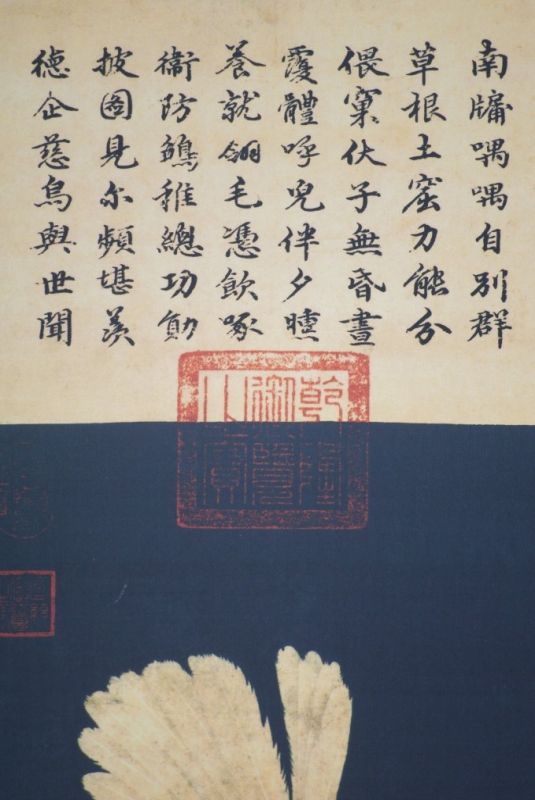 南牗喁喁自別群
草根土窟力能分
偎窠伏子無昏晝
覆體呼兒伴夕曛
養就翎毛憑飲啄
衛防鶵稚總功勛
披圖見尔頻堪羨
德企慈烏與世聞
乾隆御覽之寶